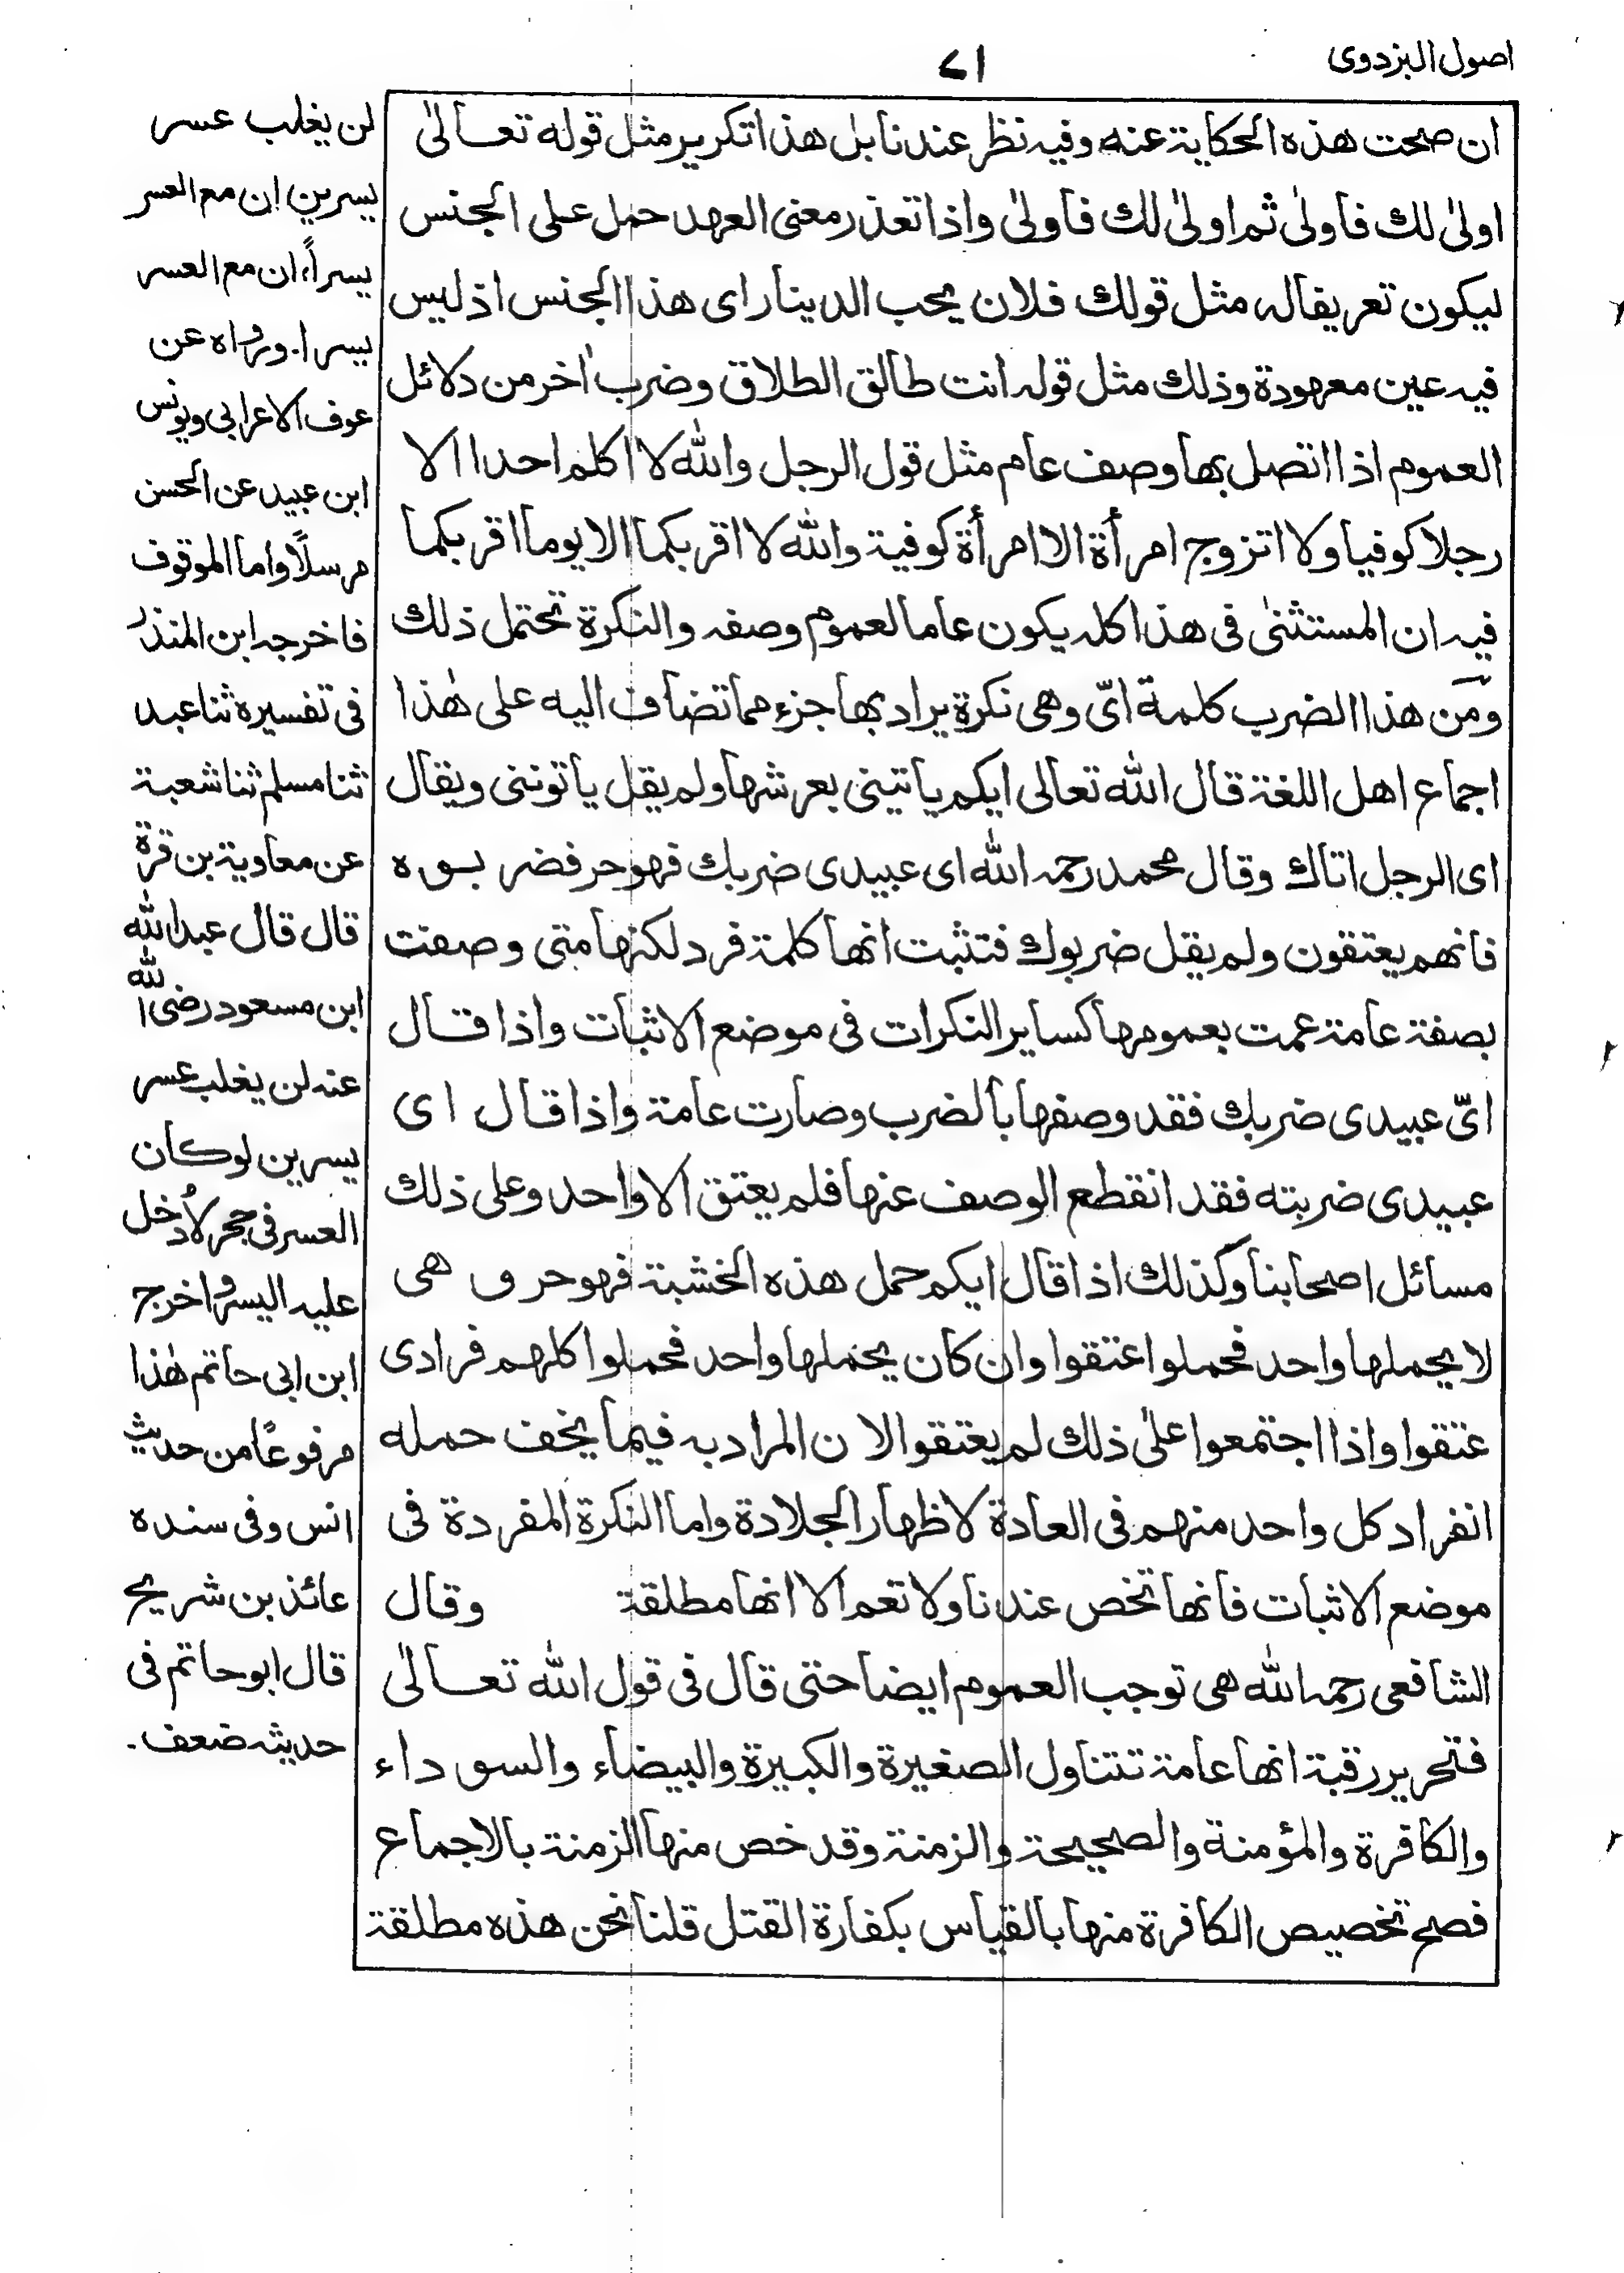 اصول البزدوی
۷۱
ان صحت هذه الحكاية عنه وفيه نظر عندنا بل هذا تكرير مثل قوله تعالىٰ
اولىٰ لك فاولىٰ ثم اولىٰ لك فاولىٰ واذا تعذر معنى العهد حمل على الجنس
ليكون تعريفا له مثل قولك فلان يحب الدينار اى هذا الجنس اذ ليس
فيه عين معهودة وذلك مثل قوله انت طالق الطلاق وضرب اٰخر من دلائل
العموم اذا اتصل بها وصف عام مثل قول الرجل والله لا اكلم احدا الا
رجلا كوفيا ولا اتزوج امرأة الا امرأة كوفية والله لا اقربكما الا يوما اقربكما
فيه ان المستثنىٰ فى هذا كله يكون عاما لعموم وصفه والنكرة تحتمل ذلك
ومن هذا الضرب كلمة اىّ وهى نكرة يراد بها جزء مما تضاف اليه على هٰذا
اجماع اهل اللغة قال الله تعالى ايكم ياتينى بعرشها ولم يقل ياتوننى ويقال
اى الرجل اتاك وقال محمد رحمه الله اى عبيدى ضربك فهو حر فضر بوه
فانهم يعتقون ولم يقل ضربوك فتثبت انها كلمة فرد لكنها متى وصفت
بصفة عامة عمت بعمومها كساير النكرات فى موضع الاثبات واذا قال
اىّ عبيدى ضربك فقد وصفها بالضرب وصارت عامة واذا قال اى
عبيدى ضربته فقد انقطع الوصف عنها فلم يعتق الا واحد وعلى ذلك
مسائل اصحابنا وكذلك اذا قال ايكم حمل هذه الخشبة فهو حر و هى
لا يحملها واحد فحملوا عتقوا وان كان يحملها واحد فحملوا كلهم فرادى
عتقوا واذا اجتمعوا علىٰ ذلك لم يعتقوا لا ن المراد به فيما يخف حمله
انفراد كل واحد منهم فى العادة لاظهار الجلادة واما النكرة المفردة فى
موضع الاثبات فانها تخص عندنا ولا تعم الا انها مطلقة وقال
الشافعى رحمه الله هى توجب العموم ايضا حتى قال فى قول الله تعالىٰ
فتحرير رقبة انها عامة تتناول الصغيرة والكبيرة والبيضاء والسو داء
والكافرة والمؤمنة والصحيحة والزمنة وقد خص منها الزمنة بالاجماع
فصح تخصيص الكافرة منها بالقياس بكفارة القتل قلنا نحن هذه مطلقة
لن يغلب عسر
يسرين ان مع العسر
يسراً، ان مع العسر
يسرا. ورواه عن
عوف الاعرابى ويونس
ابن عبيد عن الحسن
مرسلاً واما الموقوف
فاخرجه ابن المنذر
فى تفسيره ثنا عبد
ثنا مسلم ثنا شعبة
عن معاوية بن قرة
قال قال عبد الله
ابن مسعود رضى الله
عنه لن يغلب عسر
يسرين لو كان
العسر فى جحر لادخل
عليه اليسر واخرج
ابن ابى حاتم هٰذا
مرفوعاً من حديث
انس وفى سنده
عائذ بن شريح
قال ابو حاتم فى
حديثه ضعف.